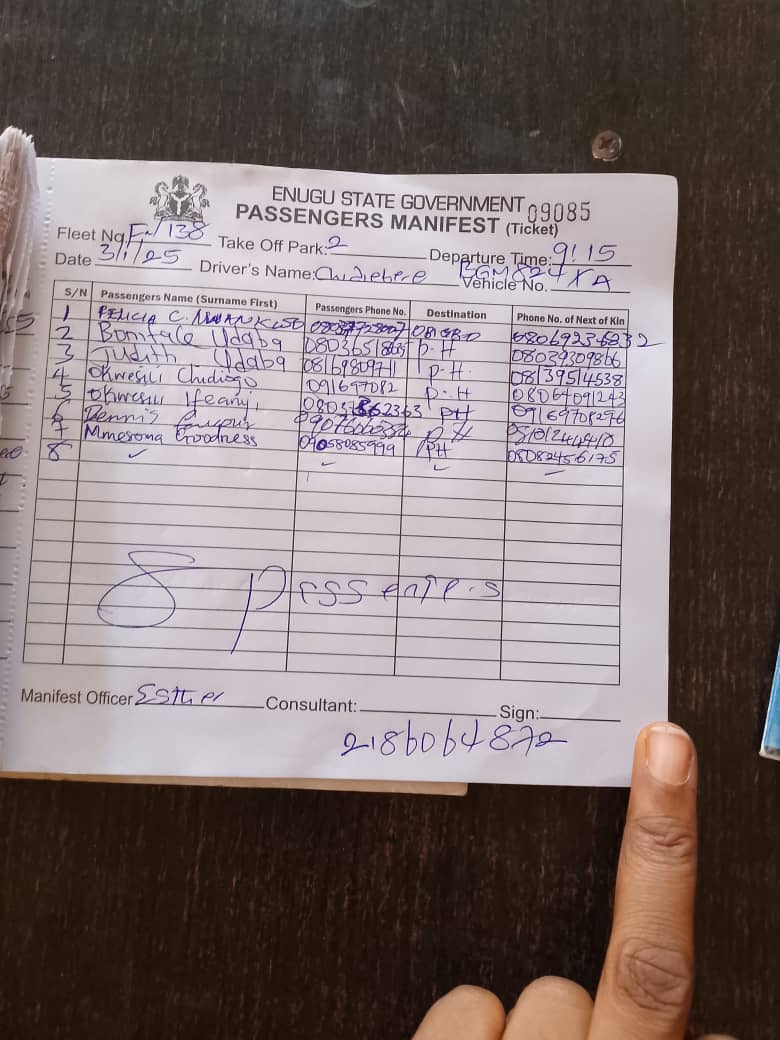 ENUGU STATE GOVERNMENT
PASSENGERS MANIFEST (Ticket) 09085
Fleet No. 138 Take Off Park: 2 Departure Time: 9:15
Date 3/1/25 Driver's Name: Chidiebere Vehicle No. XA
S/N Passengers Name (Surname First) Passengers Phone No. Destination Phone No. of Next of Kin
1 FELICIA C.
2 Boniface Udaba P-H 08039309866
3 Judith Udaba 08169809711 P-H. 08139514538
4 Okwesili Chidiogo 091697082 P-H 08064091243
5 Okwesili Ifeanyi PH 09169708296
6 Dennis P H
7 Mmesoma Goodness 09058085999 PH 08082456175
8 ✓ ✓ ✓ ✓
8 Passengers
Manifest Officer Esther Consultant: Sign:
2186064872